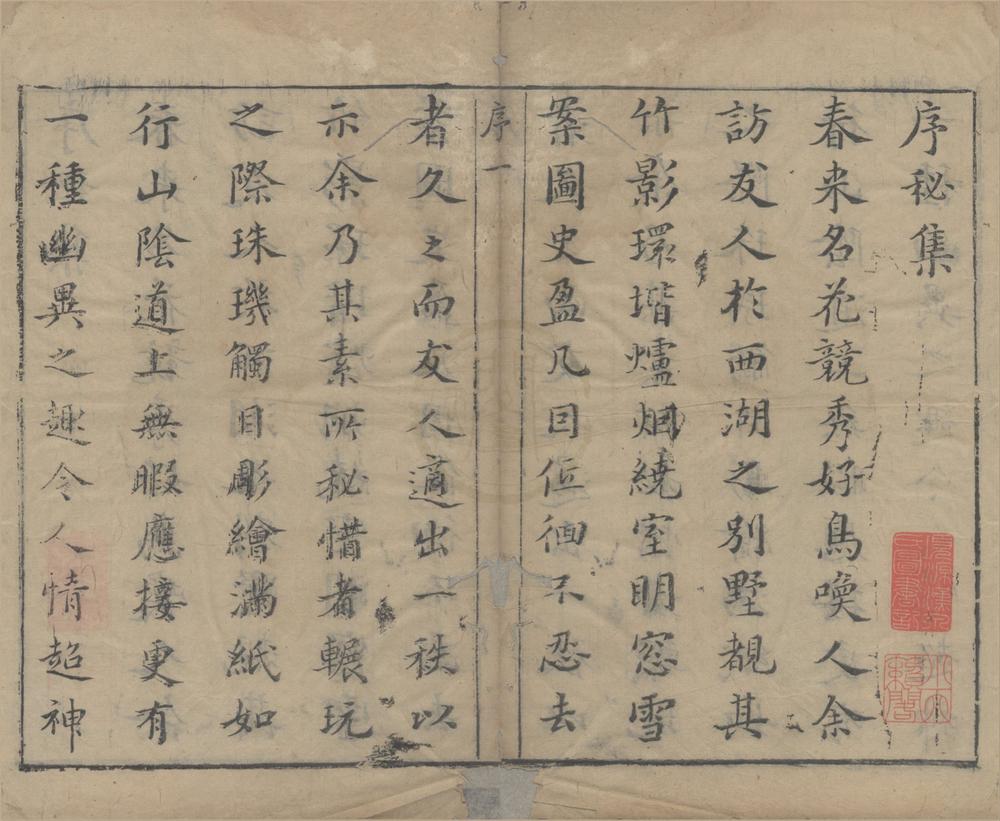 序秘集
春来名花競秀好鳥喚人余
訪友人扵西湖之别墅覩其
竹影環堦爐烟繞室明窓雪
案圖史盈几因低徊不忍去
序一
者久之而友人適出一秩以
示余乃其素所秘惜者輾玩
之際珠璣觸目彫繪滿紙如
行山陰道上無暇應接更有
一種幽異之趣令人情超神